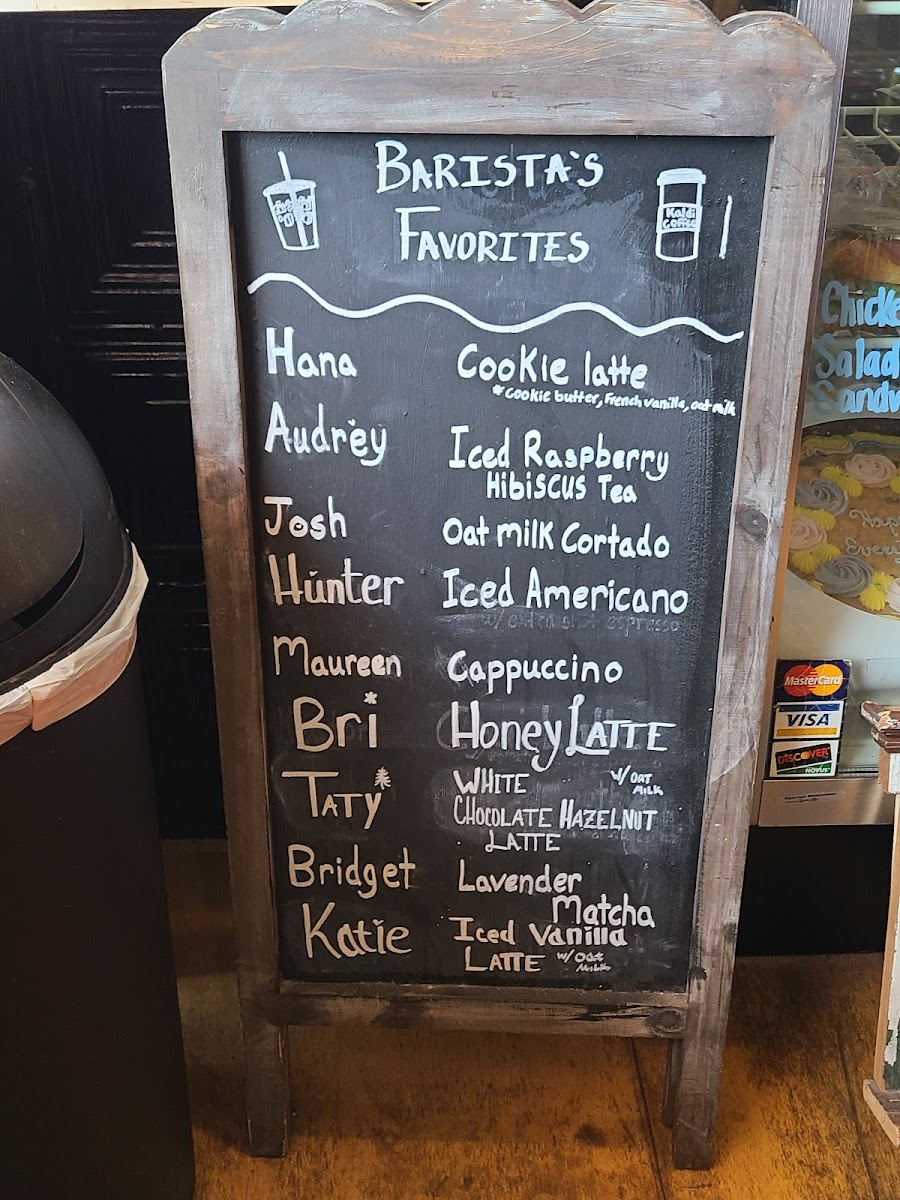 BARISTA'S
FAVORITES
Kaldi
COFFEE
Hana Cookie latte
*cookie butter, French vanilla, oat milk
Audrey Iced Raspberry
Hibiscus Tea
Josh Oat milk Cortado
Hunter Iced Americano
w/ extra shot espresso
Maureen Cappuccino
Bri Honey LATTE
TATY WHITE W/ OAT
MILK
CHOCOLATE HAZELNUT
LATTE
Bridget Lavender
Matcha
Katie Iced Vanilla
LATTE w/ oat
milk
Chicke
Salad
Sandw
MasterCard
VISA
DISCOVER
NOVUS